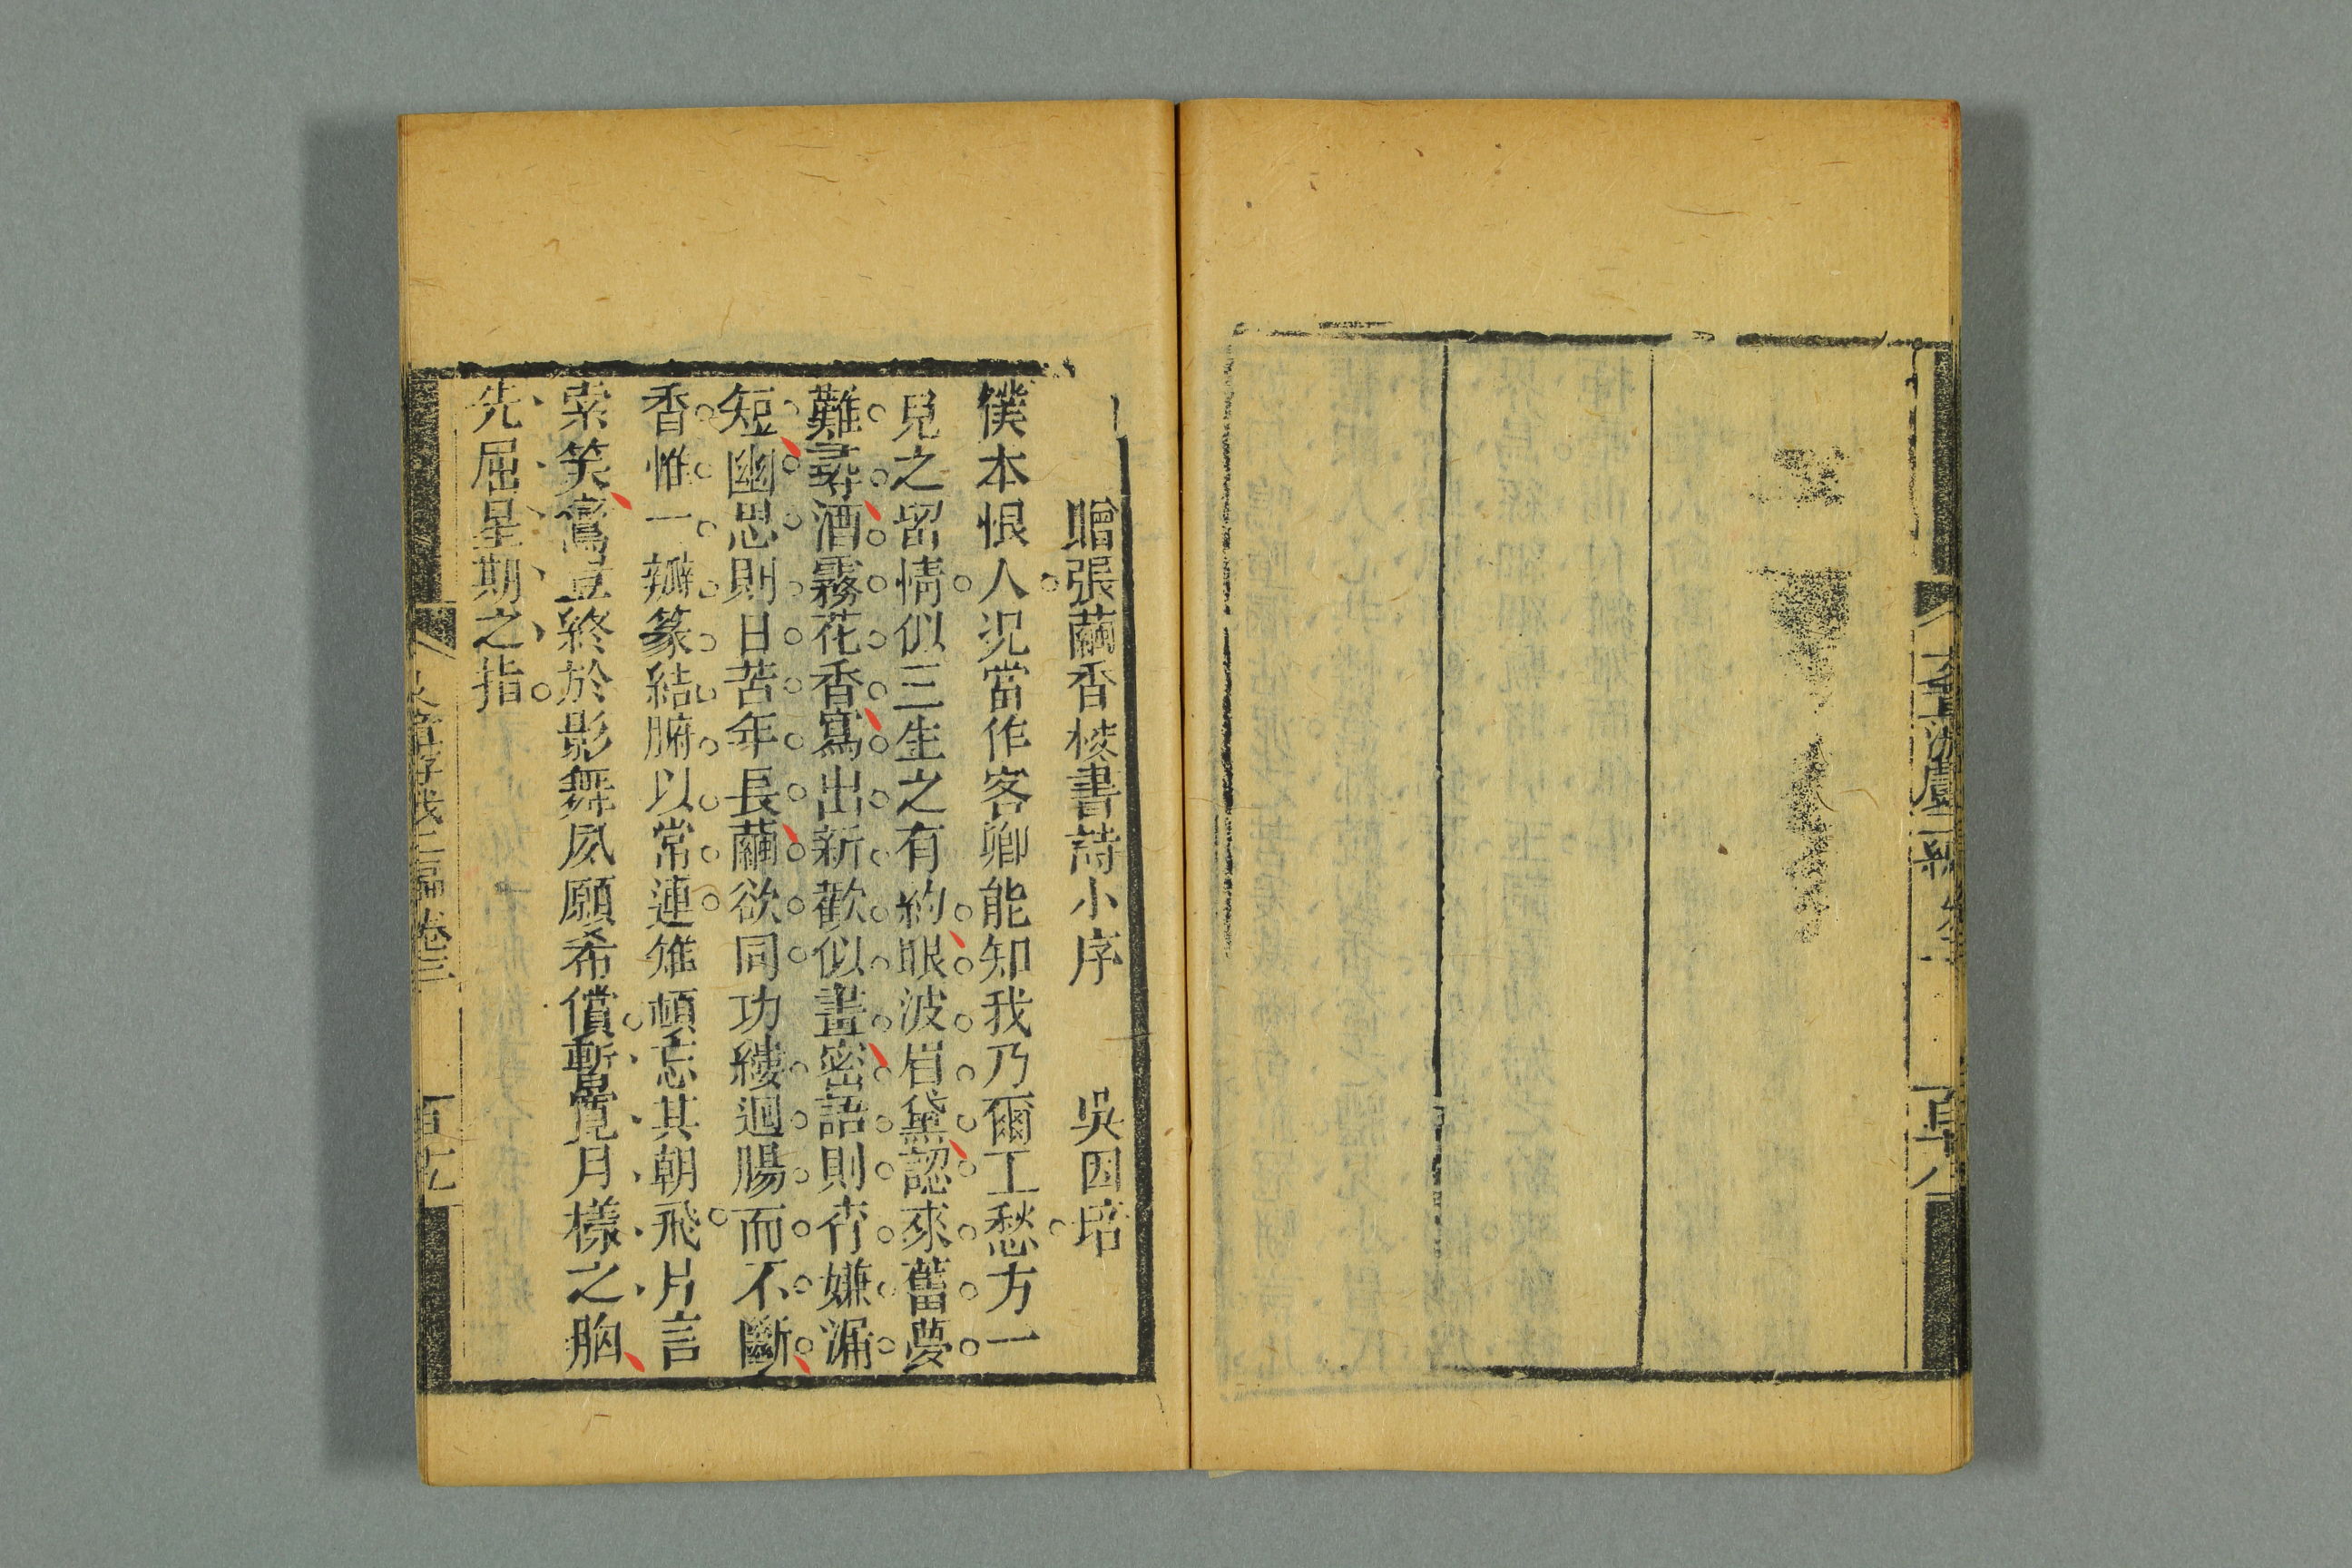 贈張蘭香校書詩小序 吳因培
僕本恨人況當作客卿能知我乃爾工愁方一
見之留情似三生之有約眼波眉黛認來舊夢
難尋酒霧花香寫出新歡似畫密語則杏嫌漏
短幽思則日苦年長繭欲同功縷迴腸而不斷
香惟一瓣篆結腑以常連雖頓忘其朝飛片言
索笑鸞豈終於影舞夙願希償暫覓月樣之胸
先屈星期之指